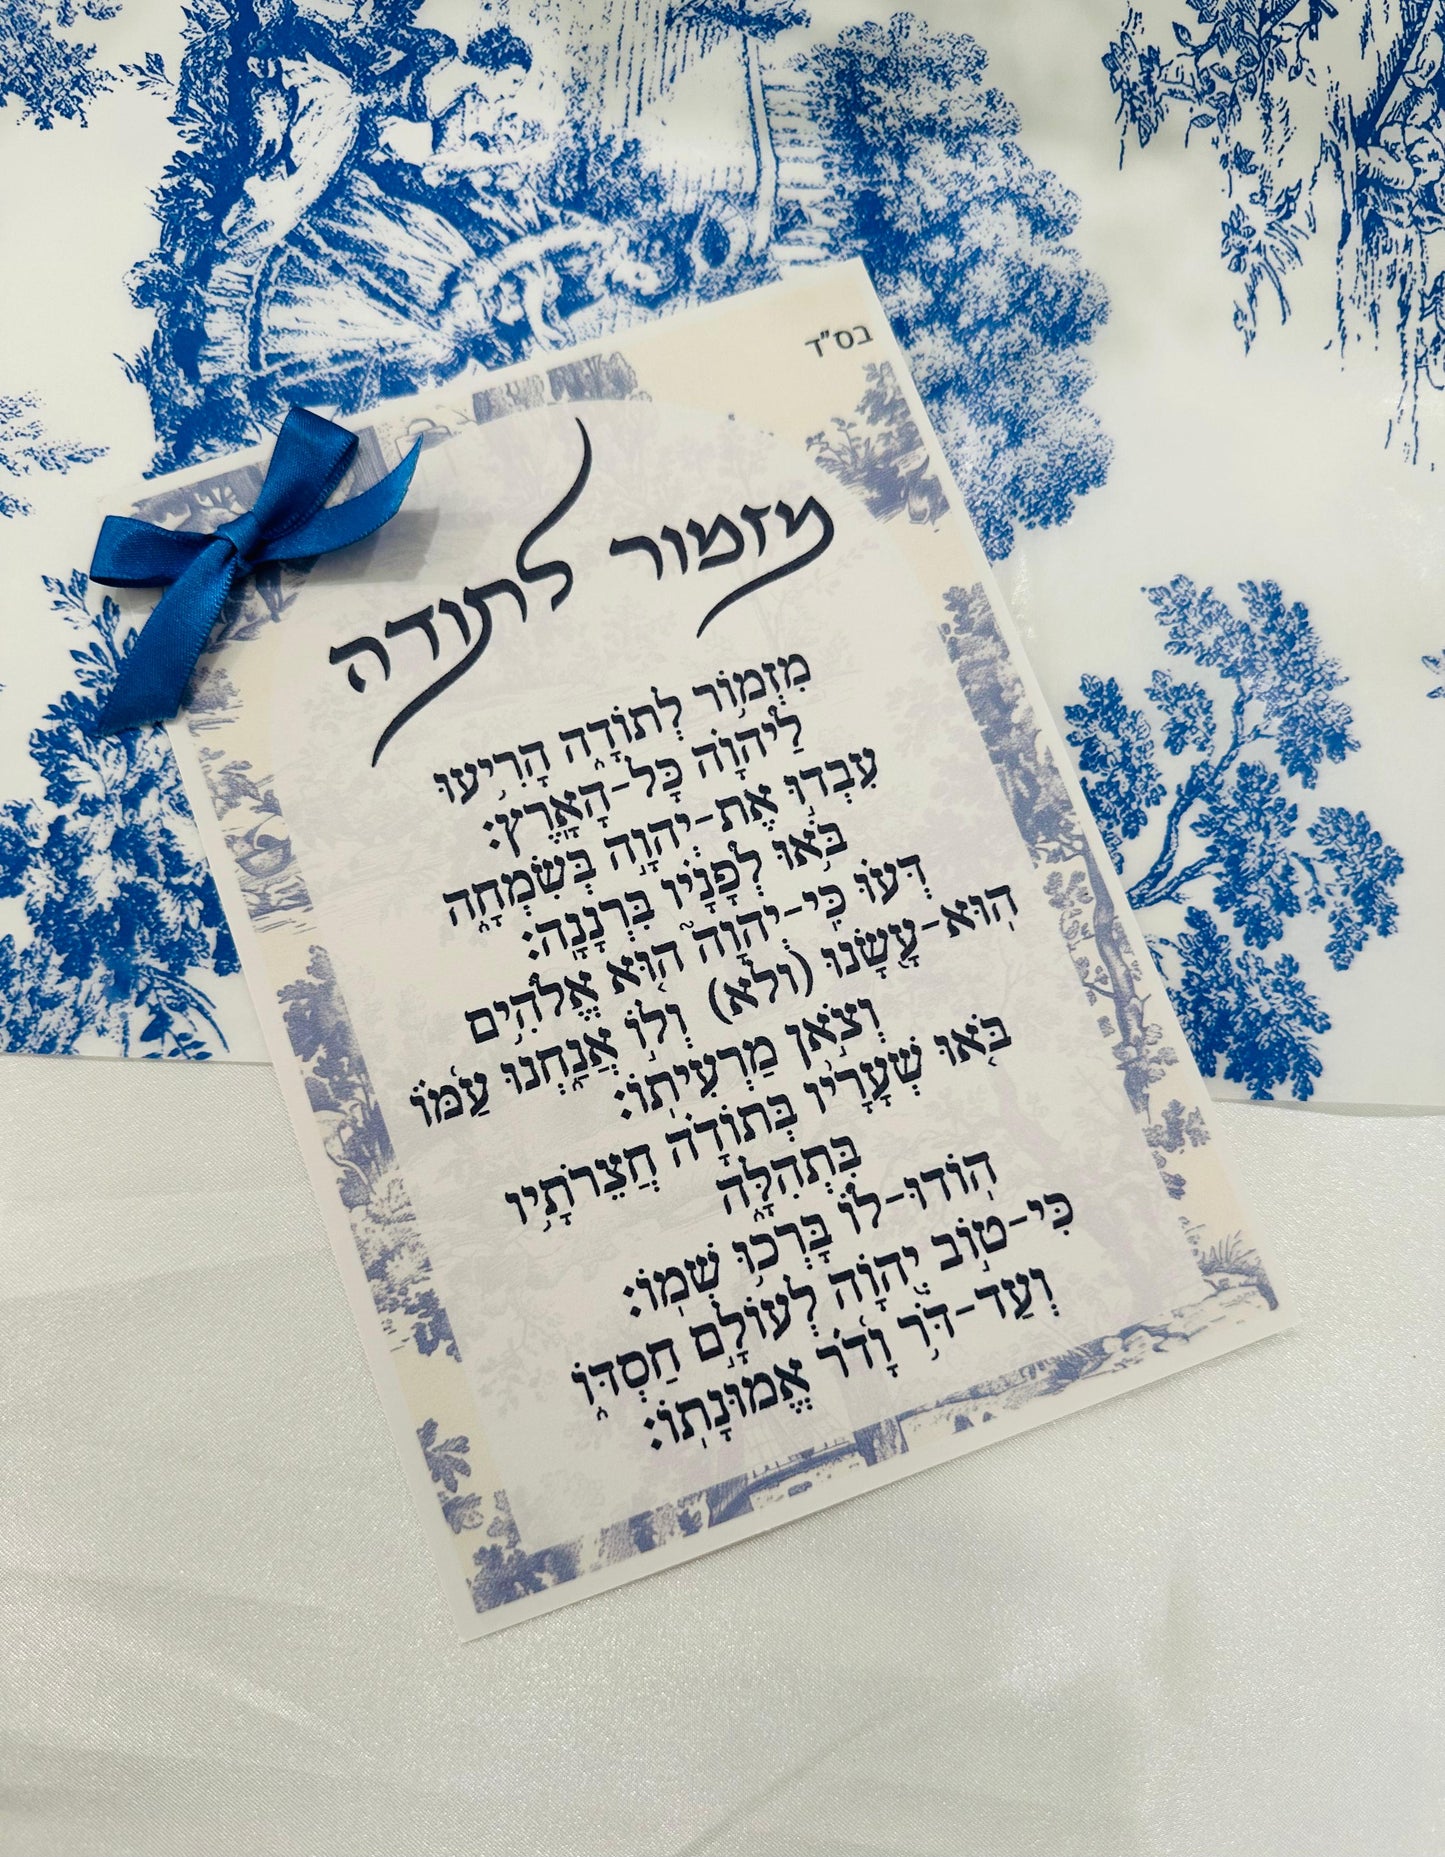 בס"ד
מזמור לתודה
מִזְמ֥וֹר לְתוֹדָ֑ה הָרִ֥יעוּ
לַ֝יהוָ֗ה כָּל-הָאָֽרֶץ׃
עִבְד֣וּ אֶת-יְהוָ֣ה בְּשִׂמְחָ֑ה
בֹּ֥אוּ לְ֝פָנָ֗יו בִּרְנָנָֽה׃
דְּע֗וּ כִּֽי-יְהוָה֮ ה֤וּא אֱלֹ֫הִ֥ים
הֽוּא-עָ֭שָׂנוּ (ולא) וְל֣וֹ אֲנַ֑חְנוּ עַ֝מּ֗וֹ
וְצֹ֣אן מַרְעִיתֽוֹ׃
בֹּ֤אוּ שְׁעָרָ֨יו בְּתוֹדָ֗ה חֲצֵרֹתָ֥יו
בִּתְהִלָּ֑ה
הֽוֹדוּ-ל֝֗וֹ בָּרְכ֥וּ שְׁמֽוֹ׃
כִּי-ט֣וֹב יְ֭הוָה לְעוֹלָ֣ם חַסְדּ֑וֹ
וְעַד-דֹּ֥ר וָ֝דֹ֗ר אֱמוּנָתֽוֹ׃